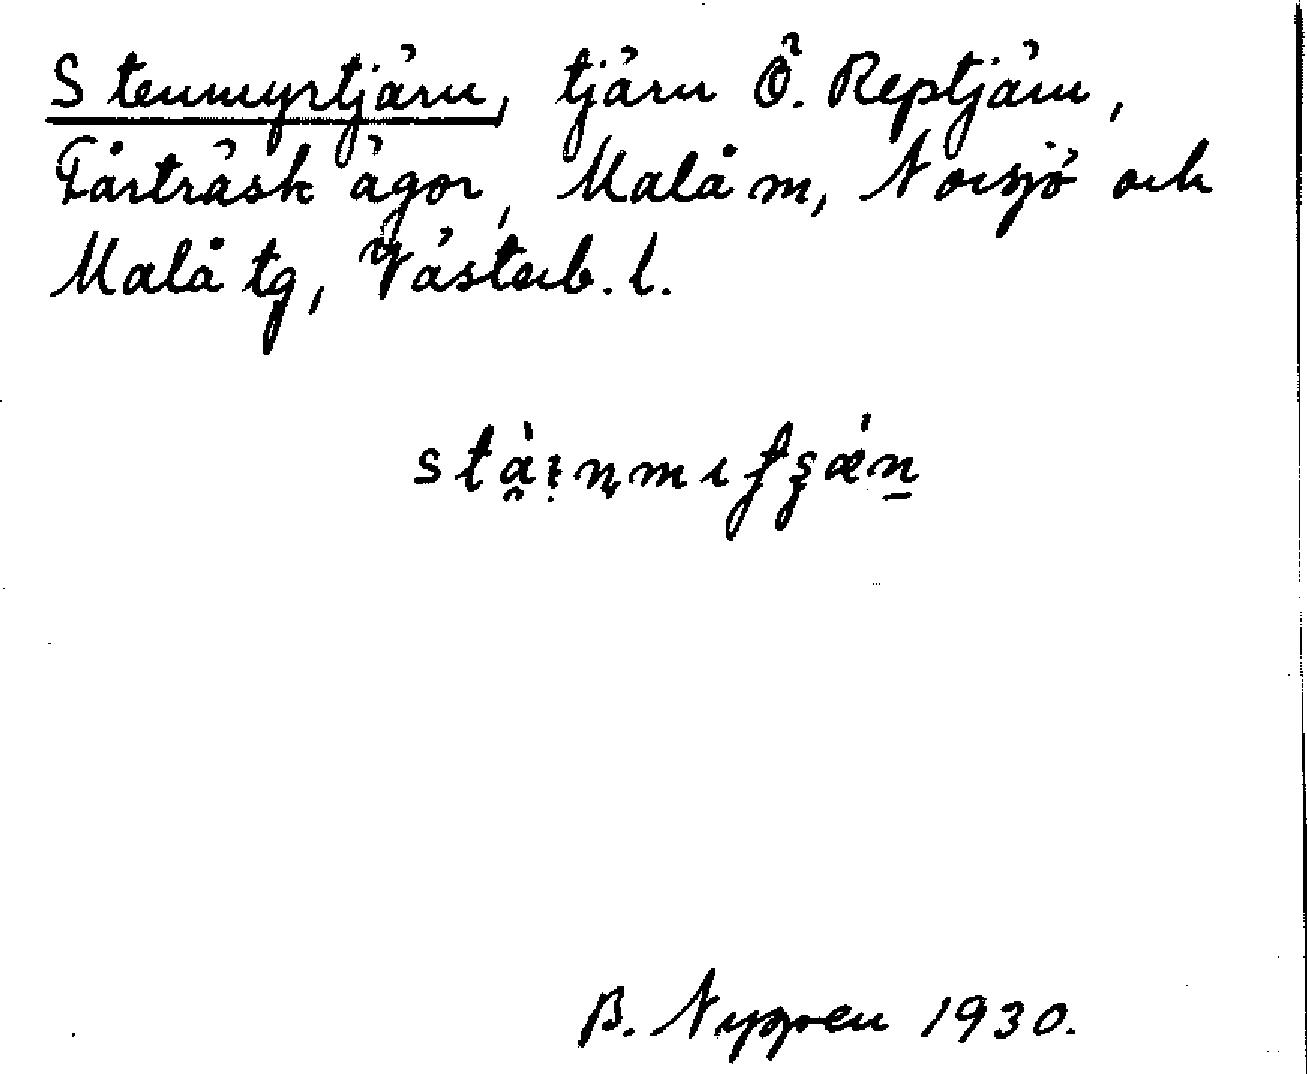 Stenmyrtjärn, tjärn Ö. Reptjärn,
Fårträsk ägor, Malå sn, Norsjö och
Malå tg, Västerb. l.
B. Nygren 1930.